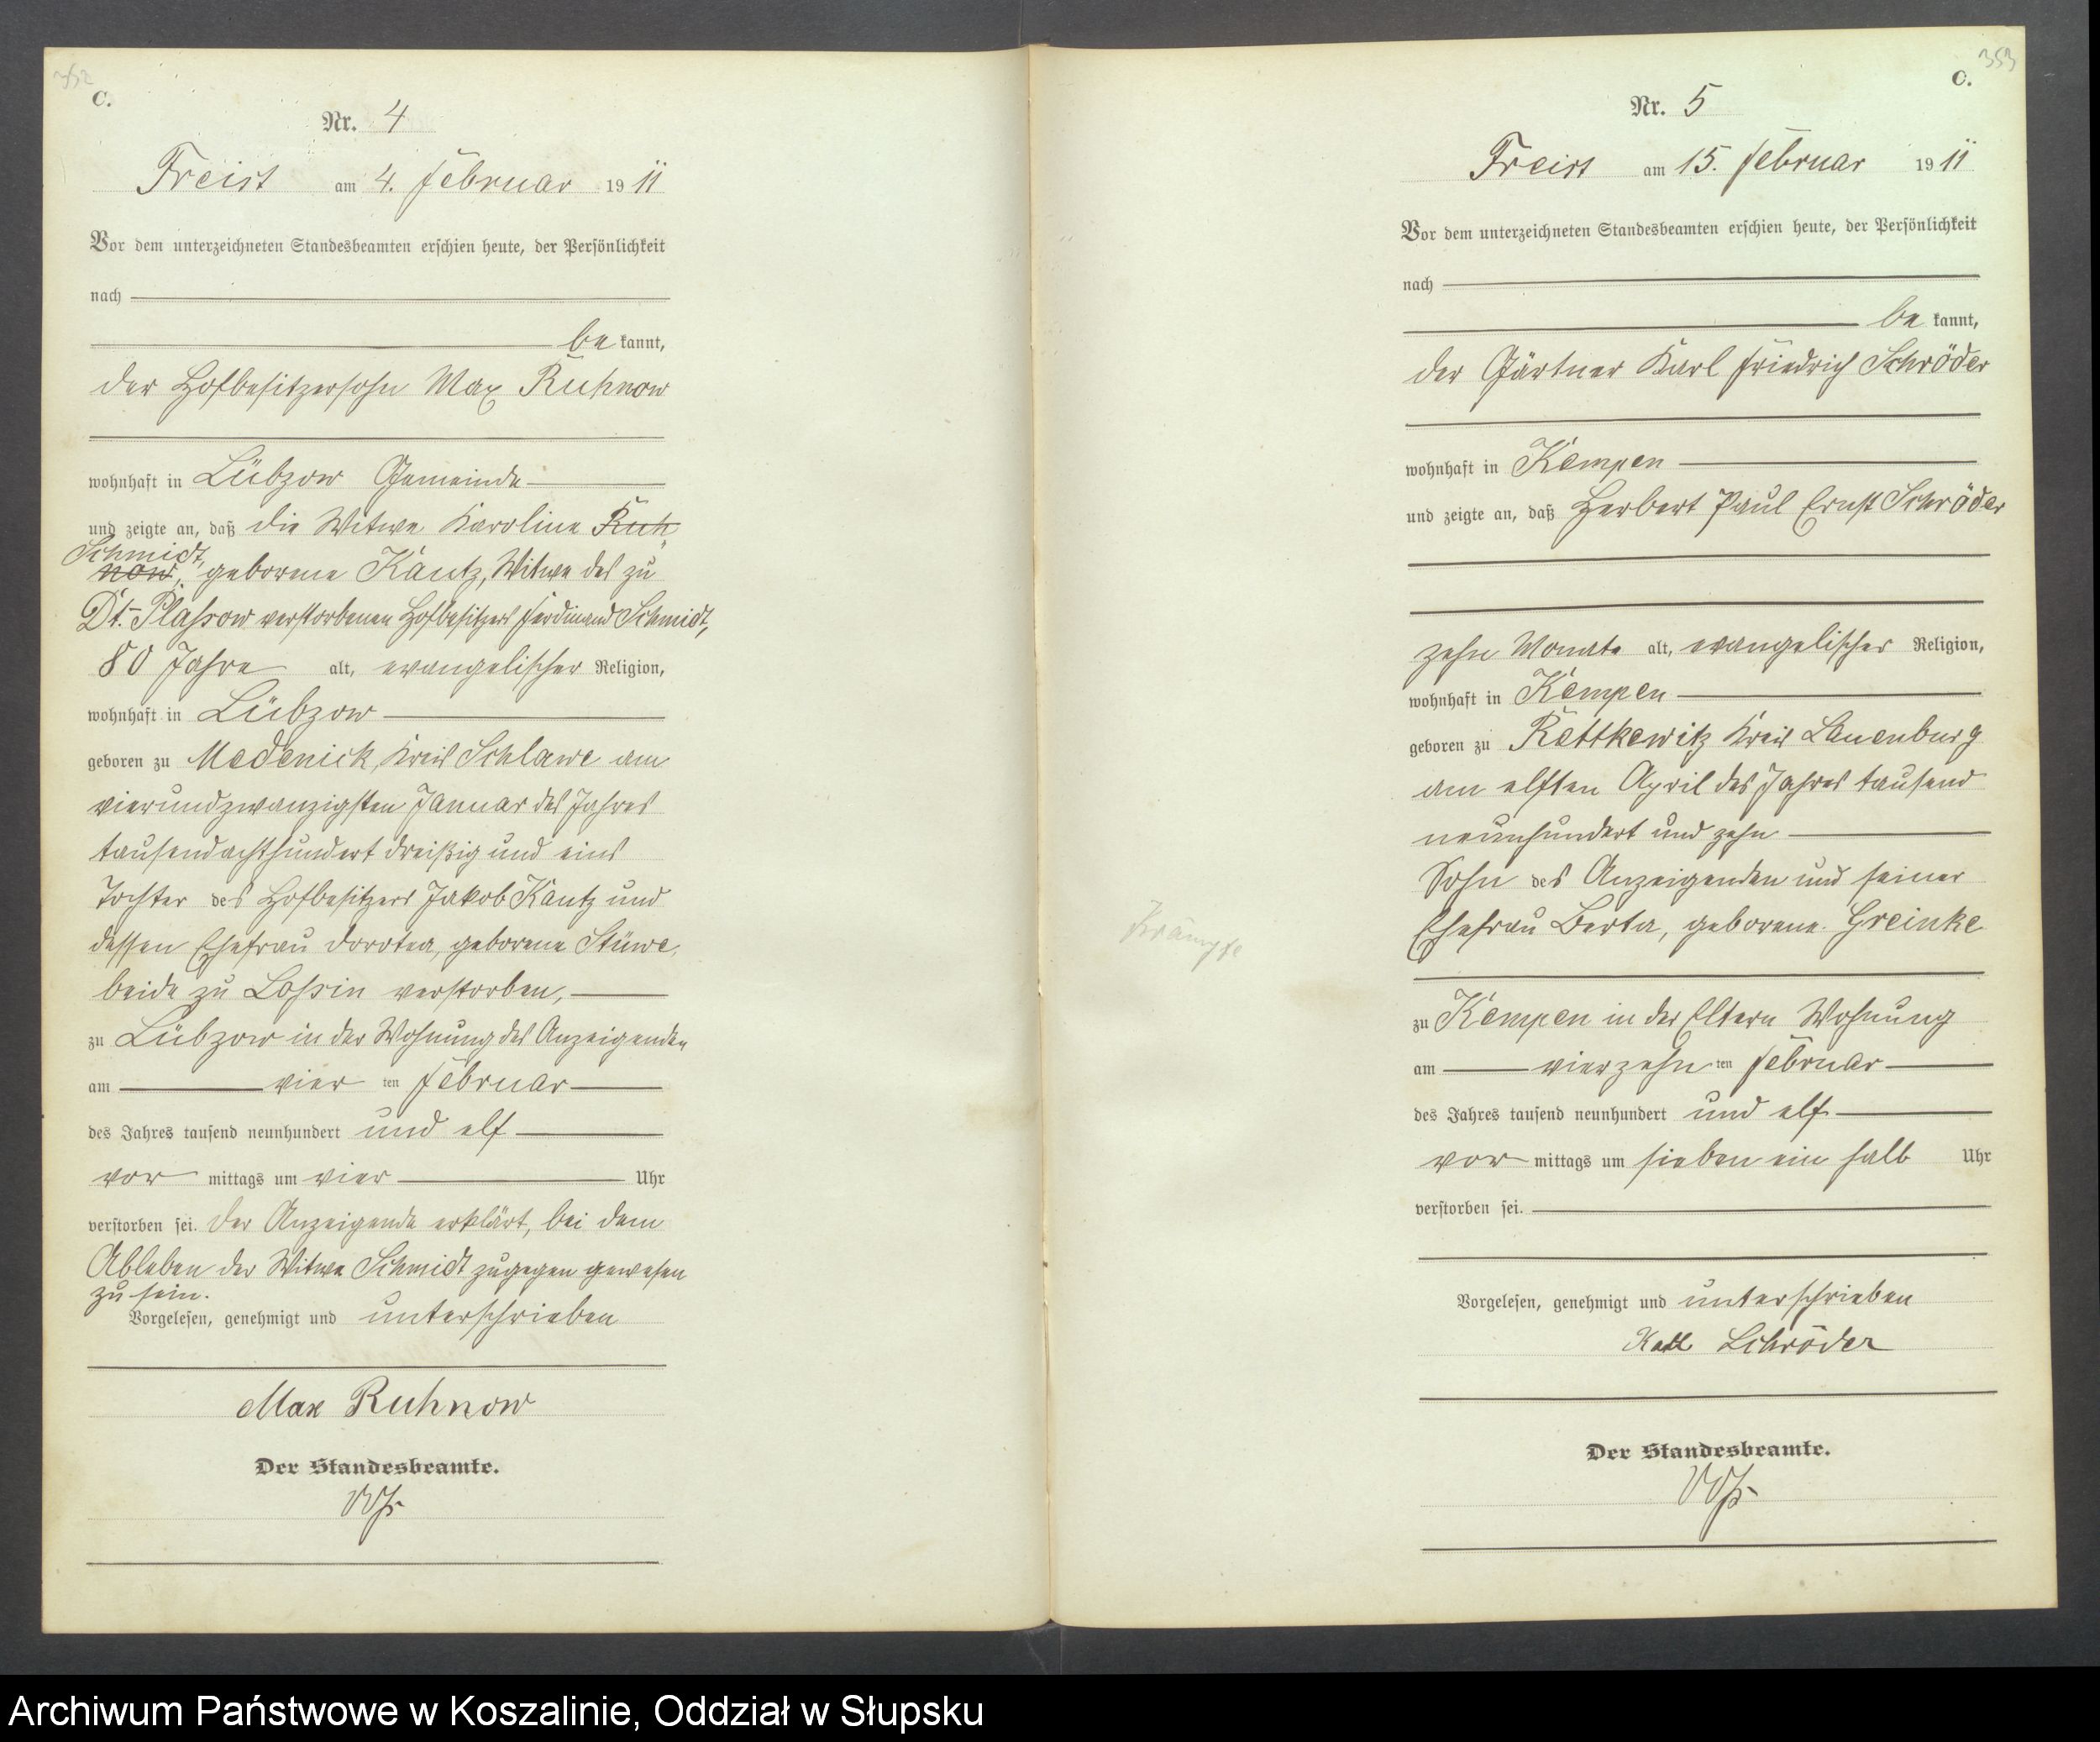 352
C.
Nr. 4
Freist am 4. Februar 19 11
Vor dem unterzeichneten Standesbeamten erschien heute, der Persönlichkeit
nach
be kannt,
der Hofbesitzersohn Max Ruhnow
wohnhaft in Lübzow Gemeinde
und zeigte an, daß die Witwe Karoline Ruh
Schmidt,
now, geborene Kautz, Witwe des zu
Dt.-Plassow verstorbenen Hofbesitzers Ferdinand Schmidt,
80 Jahre alt, evangelischer Religion,
wohnhaft in Lübzow
geboren zu Medenick, Kreis Schlawe am
vierundzwanzigsten Januar des Jahres
tausendachthundert dreißig und eins
Tochter des Hofbesitzers Jakob Kautz und
dessen Ehefrau Dorotea, geborene Stüwe,
beide zu Lossin verstorben,
zu Lübzow in der Wohnung des Anzeigenden
am vier ten Februar
des Jahres tausend neunhundert und elf
vor mittags um vier Uhr
verstorben sei. Der Anzeigende erklärt, bei dem
Ableben der Witwe Schmidt zugegen gewesen
zu sein.
Vorgelesen, genehmigt und unterschrieben
Max Ruhnow
Der Standesbeamte.
353
C.
Nr. 5
Freist am 15. Februar 19 11
Vor dem unterzeichneten Standesbeamten erschien heute, der Persönlichkeit
nach
be kannt,
der Gärtner Karl Friedrich Schröder
wohnhaft in Kempen
und zeigte an, daß Herbert Paul Ernst Schröder
zehn Monate alt, evangelischer Religion,
wohnhaft in Kempen
geboren zu Rettkewitz Kreis Lauenburg
am elften April des Jahres tausend
neunhundert und zehn
Sohn des Anzeigenden und seiner
Ehefrau Berta, geborene Greinke
Krämpfe
zu Kempen in der Eltern Wohnung
am vierzehn ten Februar
des Jahres tausend neunhundert und elf
vor mittags um sieben ein halb Uhr
verstorben sei.
Vorgelesen, genehmigt und unterschrieben
Karl Schröder
Der Standesbeamte.
Archiwum Państwowe w Koszalinie, Oddział w Słupsku